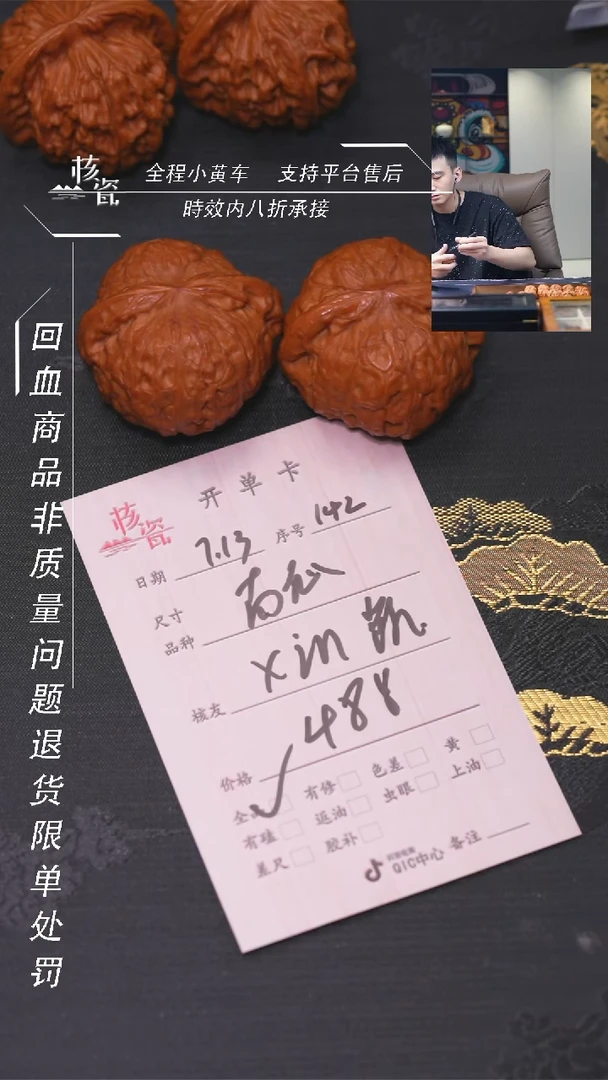 核瓷
全程小黄车 支持平台售后
時效内八折承接
回血商品非质量问题退货限单处罚
核瓷
开单卡
日期 7.13 序号 142
尺寸
品种
核友 xin凯
价格 488
有修 色差 黄
有磕 返油 虫眼 上油
差尺 胶补
QIC中心 备注